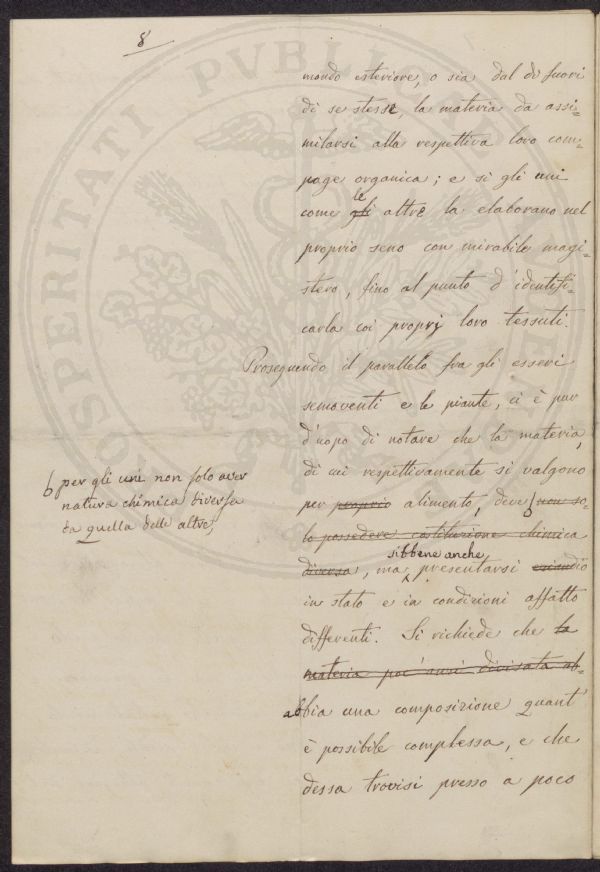 8
mondo esteriore, o sia dal di fuori
di se stessi, la materia da assi=
milarsi alla respettiva loro com=
page organica; e sì gli uni
le
come gli altre la elaborano nel
proprio seno con mirabile magi=
stero, fino al punto d'identifi=
carla coi proprj loro tessuti.
Proseguendo il parallelo fra gli esseri
semoventi e le piante, ci è pur
d'uopo di notare che la materia,
di cui respettivamente si valgono
per proprio alimento, deve non so=
lo possedere costituzione chimica
sibbene anche
diversa, ma presentarsi eziandio
in stato e in condizioni affatto
differenti. Si richiede che la
materia poc'anzi divisata ab=
abbia una composizione quant'
è possibile complessa, e che
dessa trovisi presso a poco
per gli uni non solo aver
natura chimica diversa
da quella delle altre,
PROSPERITATI PVBLICAE